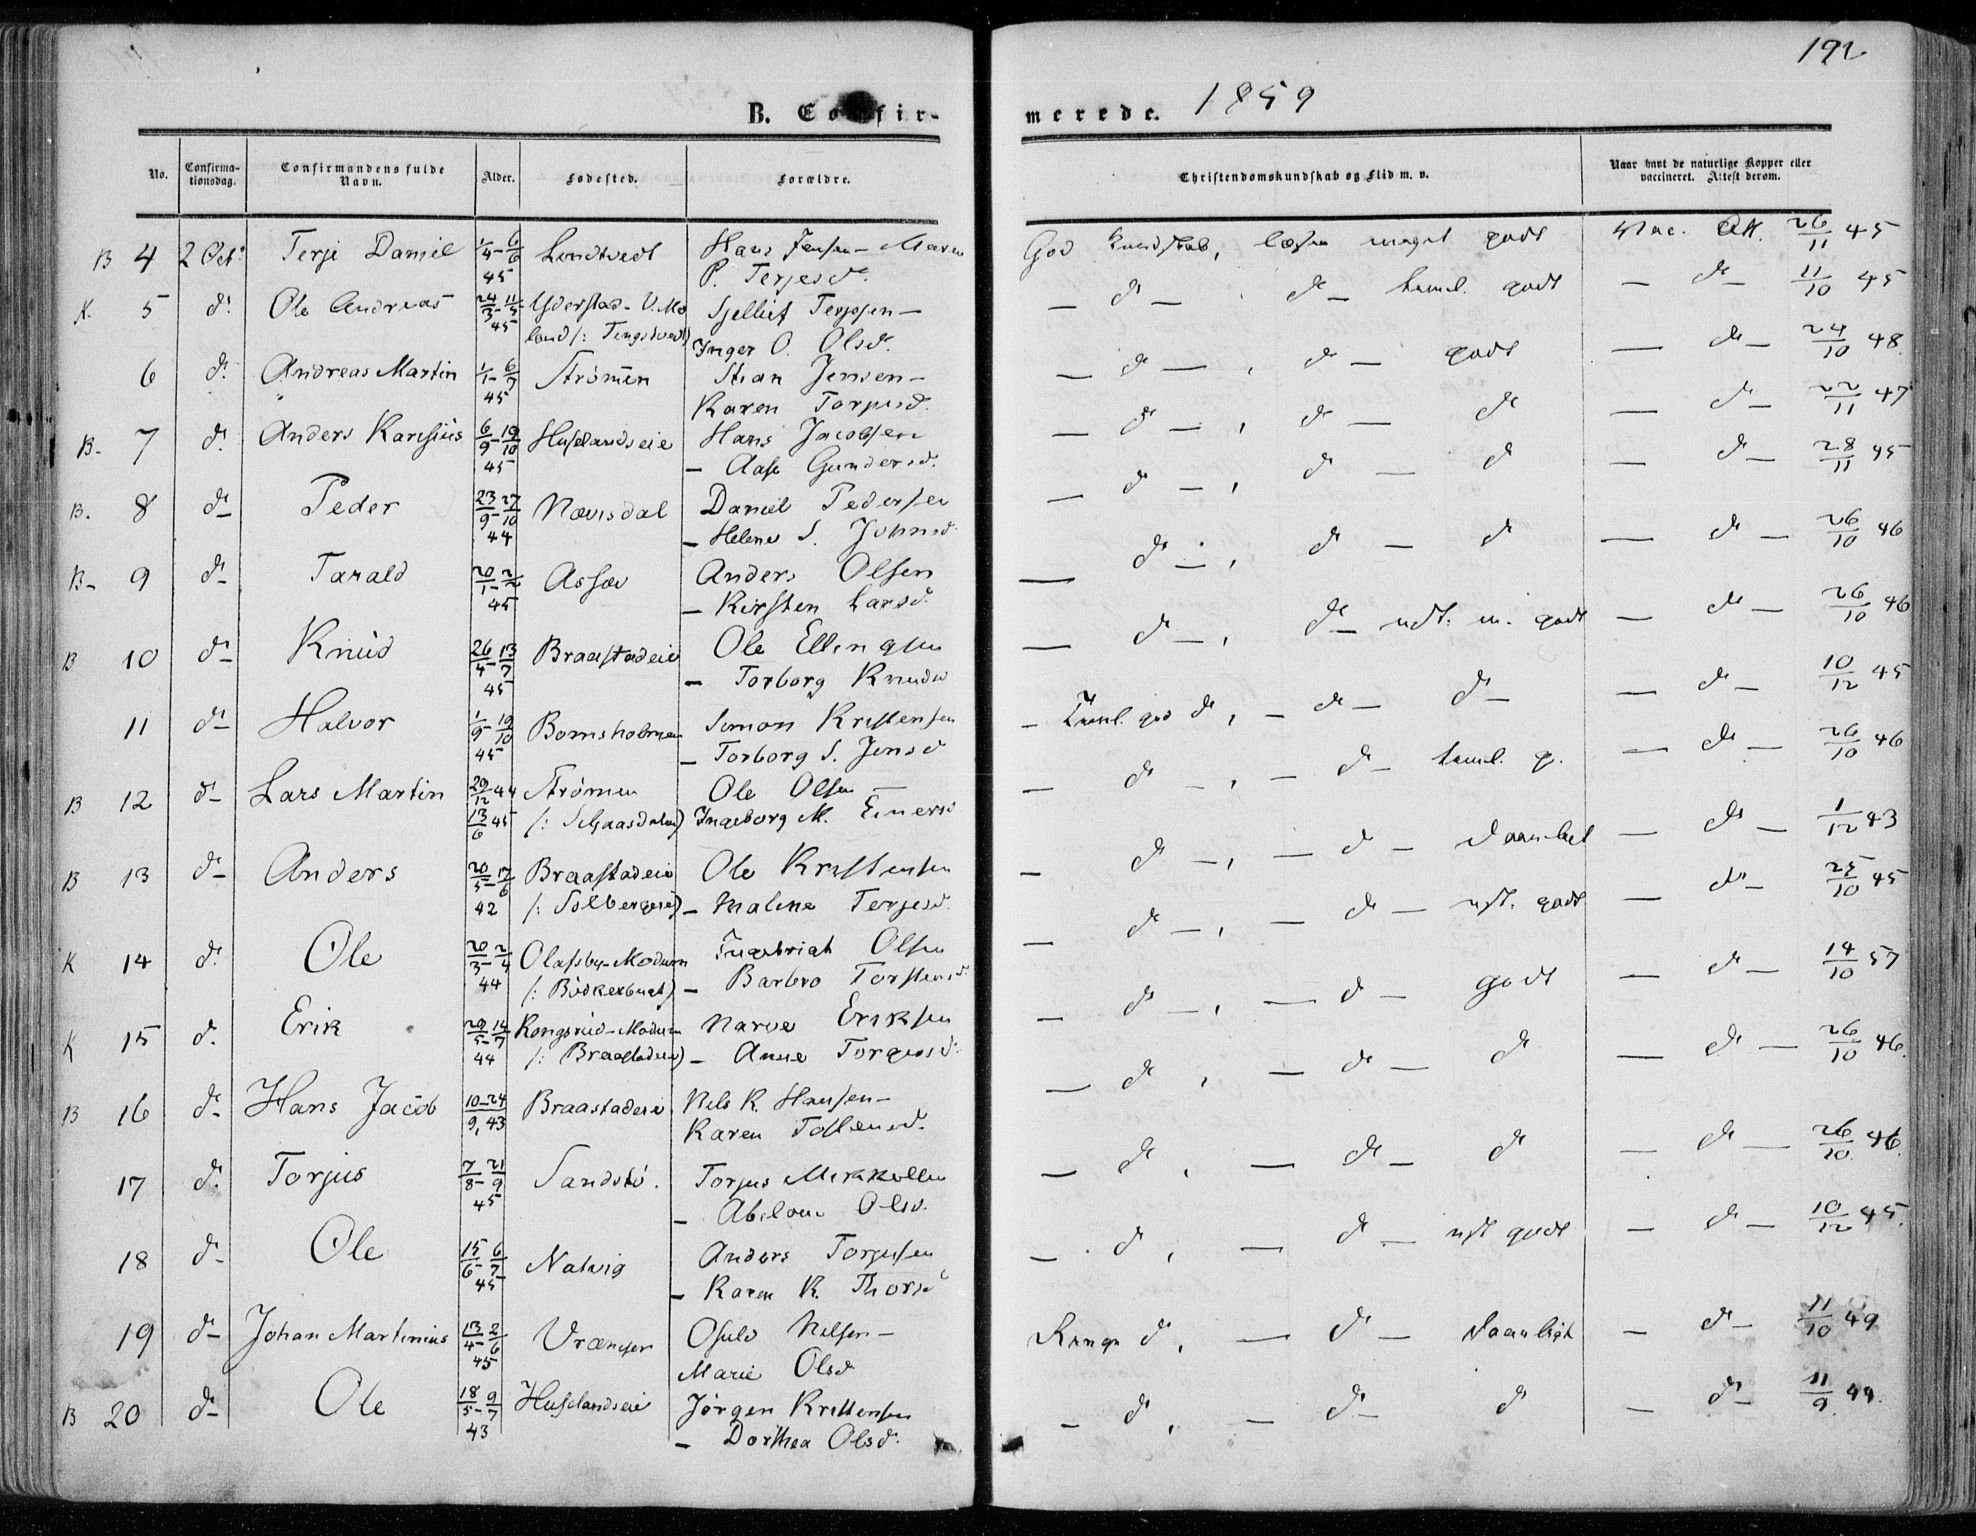 192
B. Confir-
merede. 1859
No.
Confirma-
tionsdag.
Confirmandens fulde
Navn.
Alder.
Fødested.
Forældre.
Christendomskundskab og Flid m. v.
Naar havt de naturlige Kopper eller
vaccineret. Attest derom.
B 4 2 Oct: Terje Daniel 1/4-6/6 45 Londtvedt Hans Jensen - Maren God Kundskab, læser meget godt Vac. Att. 26/11 45
P. Terjesd.
K. 5 d: Ole Andreas 24/3-11/5 45 Yderstad - V. Mo Sjellief Terjesen - — d — d — teml. godt — d — 11/10 45
land /: Tingstvedt) Inger O. Olsd.
6 d. Andreas Martin 1/1-6/7 45 Strømen Stian Jensen - — d —, d — godt — d — 24/10 48
Karen Torjusd.
B- 7 d. Anders Karisius 6/9-19/10 45 Huselandseie Hans Jacobsen — d —, d — d — d — 22/11 47
— Aase Gundersd.
B. 8 d- Peder 23/9-27/10 44 Nævisdal Daniel Pedersen — d —, d — d — d — 28/11 45
— Helene S. Johnsd
B- 9 d- Tarald 20/1-2/2 45 Assæv Anders Olsen — d —, d — d — d — 26/10 46
— Kirsten Larsd.
B 10 d- Knud 26/4-13/7 45 Braastadeie Ole Ellingsen — d —, d — m. godt — d — 26/10 46
— Torborg Knuds
11 d- Halvor 1/9-19/10 45 Bomsholmen Simon Kristensen — Teml. god d, — d — d — — d — 10/12 45
— Torborg S. Jensd
B 12 d- Lars Martin 29/12 44 Strømen Ole Olsen — — d —, — d — teml. g. — d — 26/10 46
13/6 45 Ingeborg M. Einersd
B 13 d- Anders 20/5-17/6 42 Braastadeie Ole Kristensen — d —, — d — daarligt — d — 1/12 43
/: Solbergeie) — Maline Terjesd.
K 14 d. Ole 20/3-2/4 44 Olafsby-Modum Ingebrigt Olsen — d —, — d — godt — d — 25/10 45
/: Bödkerbugt) — Barbro Torstensd
K 15 d. Erik 29/5-14/7 44 Kongsrud-Modum Narve Eriksen — d —, — d — godt — d — 14/10 57
/: Braastadeie) — Anne Torgersd.
B 16 d- Hans Jacob 10-24/9, 43 Braastadeie Nils K. Hansen — — d, — d — d — d — 26/10 46.
Karen Tostensd.
17 d. Torjus 7/8-21/9 45 Sandstö. Torjus Mikkelsen — d, — d — d — d — 26/10 46.
— Abelone Olsd.
18 d- Ole 15/6-6/7 45 Natvig Anders Torjusen — d, — d — godt — d — 10/12 45.
— Karen K. Thorsd
19 d- Johan Martinius 13/4-2/6 45 Vrænger Osuld Nilsen — Ringe d, — d — daarligt — d — 11/10 49
Marie Olsd
B 20 d- Ole 18/5-9/7 43 Huselandseie Jørgen Kristensen — d, — d — d — d — 11/9 44.
— Dorthea Olsd.